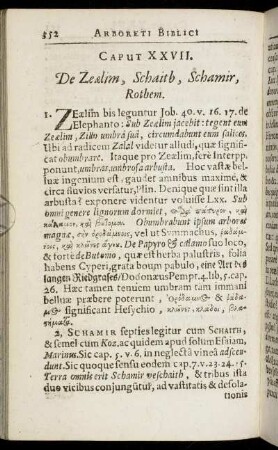 552 ARBORETI BIBLICI
CAPUT XXVII.
De Zeælim, Schaith, Schamir,
Rothem.
1. ZEælim bis leguntur Job. 40. v. 16. 17. de
Elephanto: Sub Zeælim jacebit: tegent eum
Zeælim, Zillo umbrâ suâ, circumdabunt eum salices.
Ubi ad radicem Zalal videtur alludi, quæ signifi-
cat obumbrare. Itaque pro Zeælim, ferè Interpp.
ponunt, umbras, umbrosa arbusta. Hoc vastæ bel-
luæ ingenium est: gaudet amnibus maximè, &
circa fluvios versatur, Plin. Denique quæ sint illa
arbusta? exponere videntur voluisse LXX. Sub
omni genere lignorum dormiet,
Obumbrabunt ipsum arbores
magnæ, vel ut Symmachus,
De Papyro & calamo suo loco,
& forte de Butomo, quæ est herba palustris, folia
habens Cyperi, grata boum pabulo, eine Art des
langen Riedgrases/ Dodonæus Pempt. 4. lib. 5. cap.
26. Hæc tamen tenuem umbram tam immani
belluæ præbere poterunt,
significant Hesychio,
2. SCHAMIR septies legitur cum SCHAITH,
& semel cum Koz, ac quidem apud solum Esaiam,
Marinus. Sic cap. 5. v. 6. in neglectâ vineâ adscen-
dent. Sic quoque sensu eodem cap. 7. v. 23. 24. 25.
Terra omnis erit Schamir veschaith, & tribus ista
duo vicibus conjunguntur, ad vastitatis & desola-
tionis